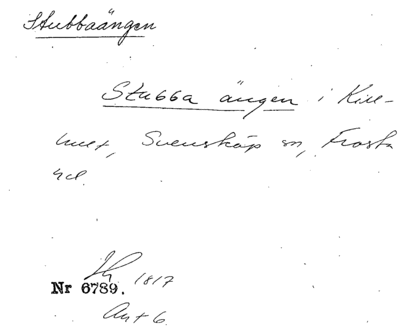 Stubbaängen
Stubba ängen i Kill-
hult, Svensköp sn, Frosta
hd.
1817
Nr 6789.
Ant 6